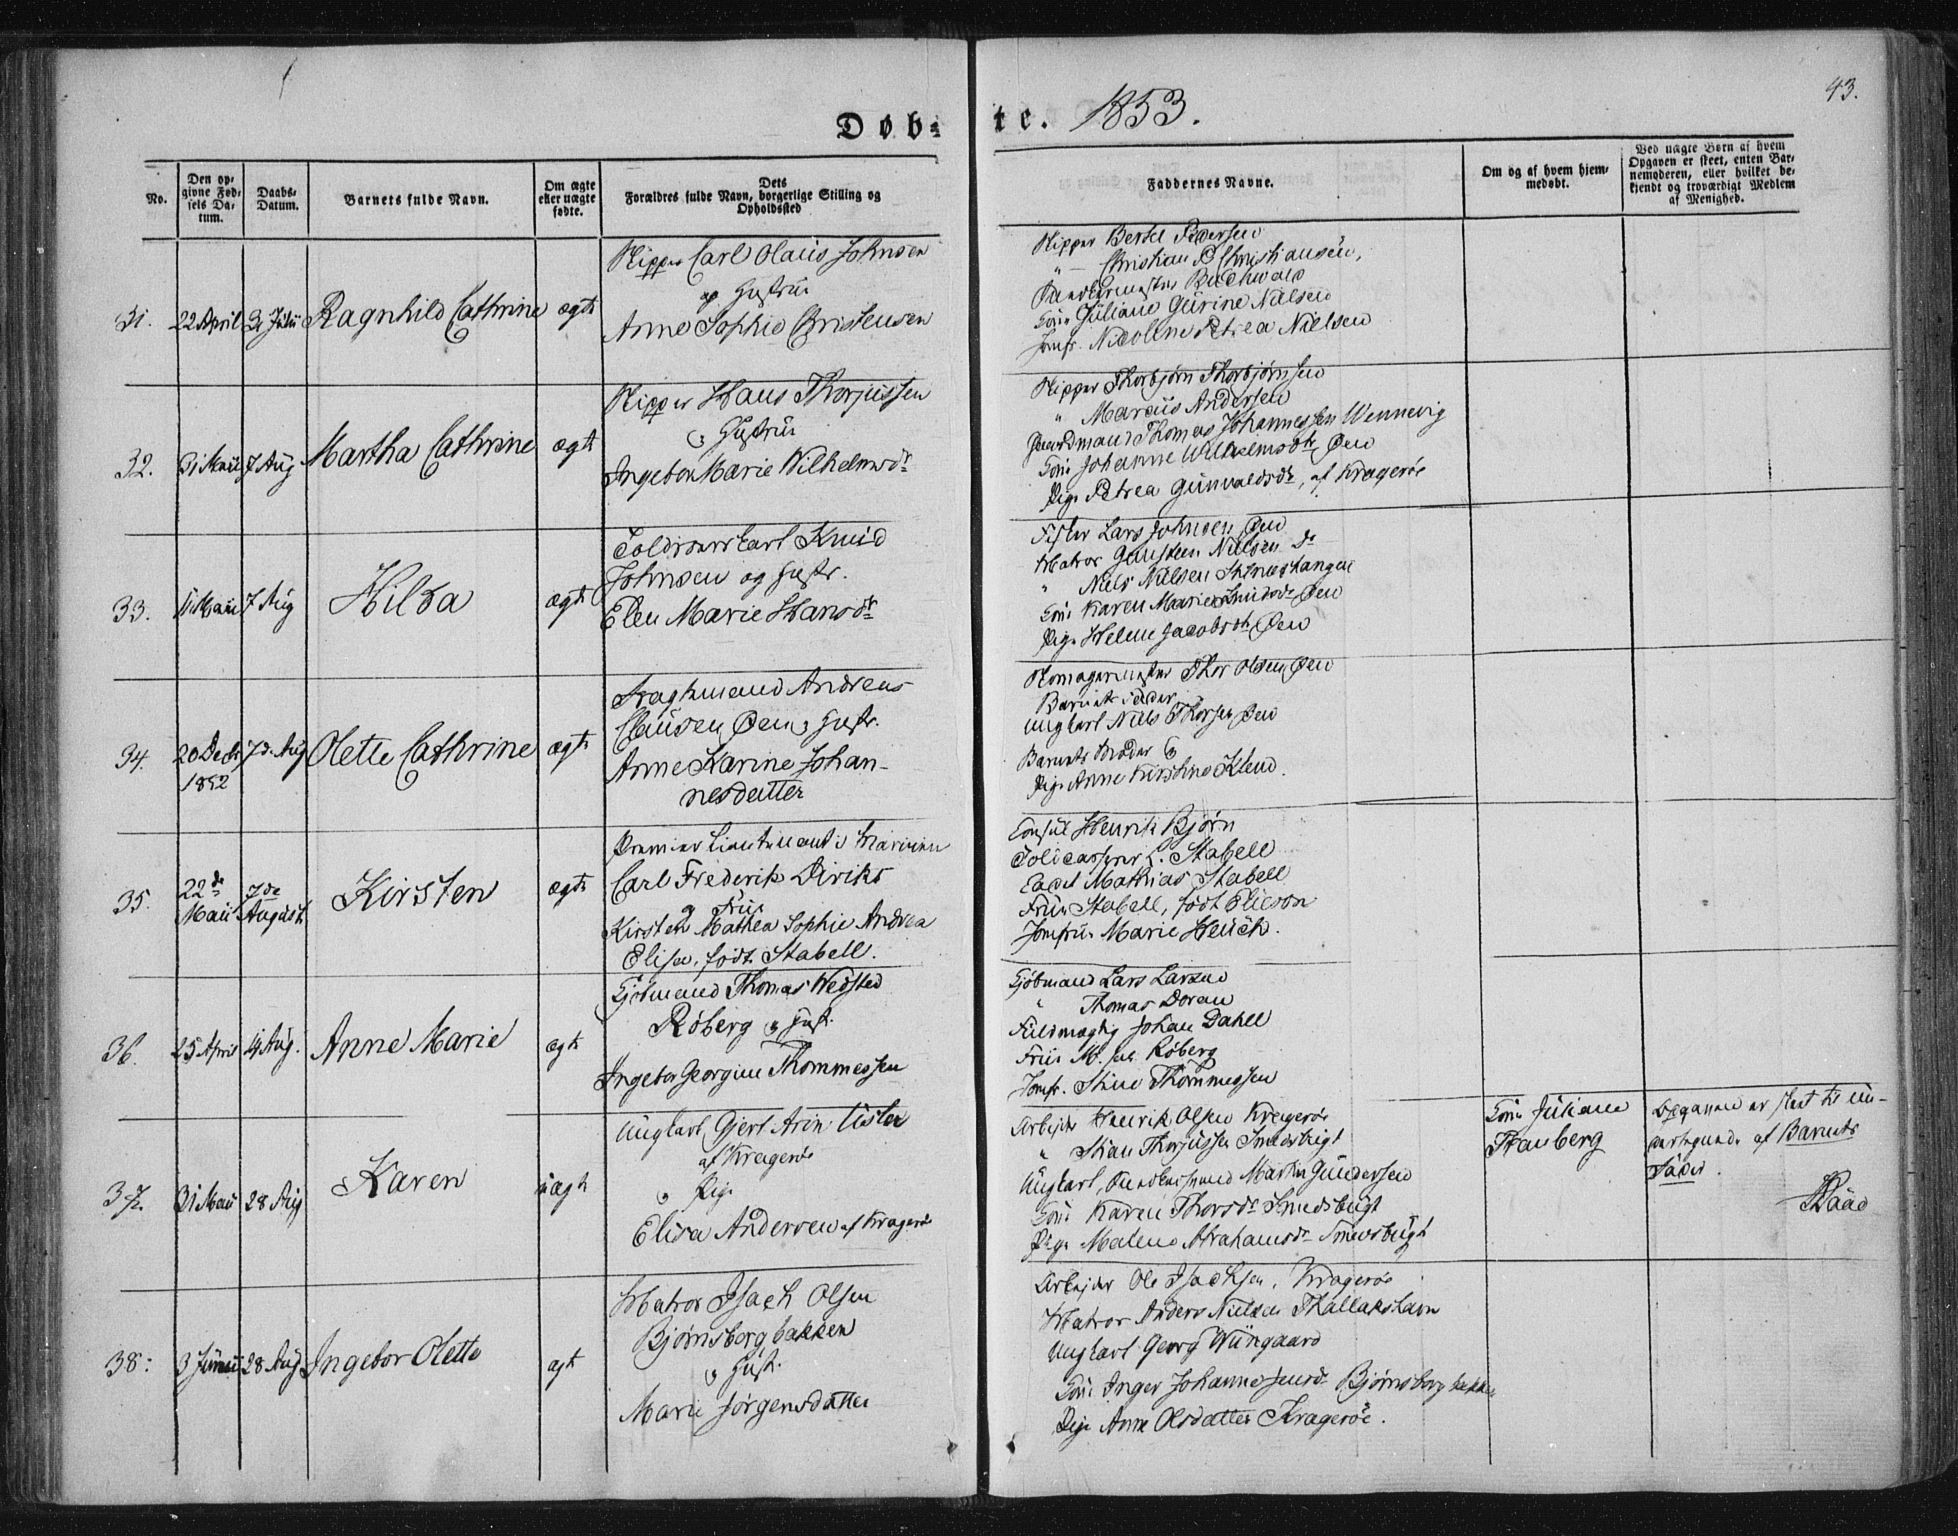 43.
Døb= te. 1853.
No.
Den op-
givne Fød-
sels Da-
tum.
Daabs-
Datum.
Barnets fulde Navn.
Om ægte
eller uægte
fødte.
Dets
Forældres fulde Navn, borgerlige Stilling og
Opholdssted
Faddernes Navne.
Om og af hvem hjem-
medøbt.
Ved uægte Børn af hvem
Opgaven er skeet, enten Bar-
nemoderen, eller hvilket be-
kjendt og troværdigt Medlem
af Menighed.
31. 22 April 31 Julii Ragnhild Cathrine ægte
Skipper Carl Olaus Johnsen
og Hustrue
Anne Sophie Christensen
Skipper Bertel Pedersen
" — Christian P Christiansen,
Buchwald
Cone Juliane Gurine Nielsen
Jomfr. Nicoline Petrea Nielsen
32. 31 Maii 7 Aug Martha Cathrine ægte
Skipper Hans Thorjussen
og Hustrue
Ingebor Marie Wilhelmsdr
Skipper Thorbjørn Thorbjørnsen
" Marcus Andersen
Gaardmand Thomas Johannessen Wennevig
Cone Johanne Wilhelmsdtr Øen
Pige Petrea Gunvaldsdr, af Kragerøe
33. 11 Maii 7 Aug Hilda ægte
Toldrorskarl Knud
Johnsen og Hustr.
Elen Marie Hansdtr
Fisker Lars Johnsen Øen
Matros Gunsteen Nielsen Do
" Niels Nielsen Steenestangen
Cone Karen Marie Knudsdr Øen
Pige Helene Jacobsdtr Øen
34. 20 Decbr 1852 7de Aug Olette Cathrine ægte
Fragtemand Andreas
Clausen Øen og Hustr.
Anne Karine Johan-
nesdatter
Skomagermester Thor Olsen Øen
Barnets Fader
Ungkarl Niels Thorsen Øen
Barnets Moder og
Pige Anne Kirstine Klend.
35. 22de Maii 7de August Kirsten ægte
Premier Lieutenant i Marinen
Carl Frederik Diriks
og Frue
Kirsten Mathea Sophie Andrea
Elisa, født Stabell.
Consul Henrik Bjørn
Toldcasserer L. Stabell
Cadet Mathias Stabell
Frue Stabell, født Elieson
Jomfrue Marie Heuch.
36. 25 April 14 Aug. Anne Marie ægte
Kjøbmand Thomas Wedsted
Røberg og Hust.
Ingebor Georgine Thommessen
Kjøbmand Lars Larsen
" Thomas Doran
Fuldmægtig Johan Dahll
Frue M. Røberg
Jomfr. Stine Thommessen
37. 31 Maii 28 Aug Karen uægte
Ungkarl Gjert Lister
af Kragerøe
og Pige
Elisa Andersen af Kragerøe
Arbejder Henrik Olsen Kragerøe
" Stian Thorjussen Smedsbugt
Ungkarl, Martin Gundersen
Cone Karen Thorsdr Smedsbugt
Pige Malene Abrahamsdr Smedsbugt
Cone Juliane
Stanberg
Opgaven er skeet til un-
dertegnede af Barnets
Fader.
38. 3 Junii 28 Aug Ingebor Olette ægte
Matros Isach Olsen
Bjørnsbergbakken
og Hust.
Marie Jørgensdatter
Arbejder Ole Isachsen, Kragerøe
Matros Anders Nielsen Thallakshavn
Ungkarl Georg Wiingaard
Cone Inger Johannesensdr Bjørnsbergbakken
Pige Anne Olsdatter Kragerøe.